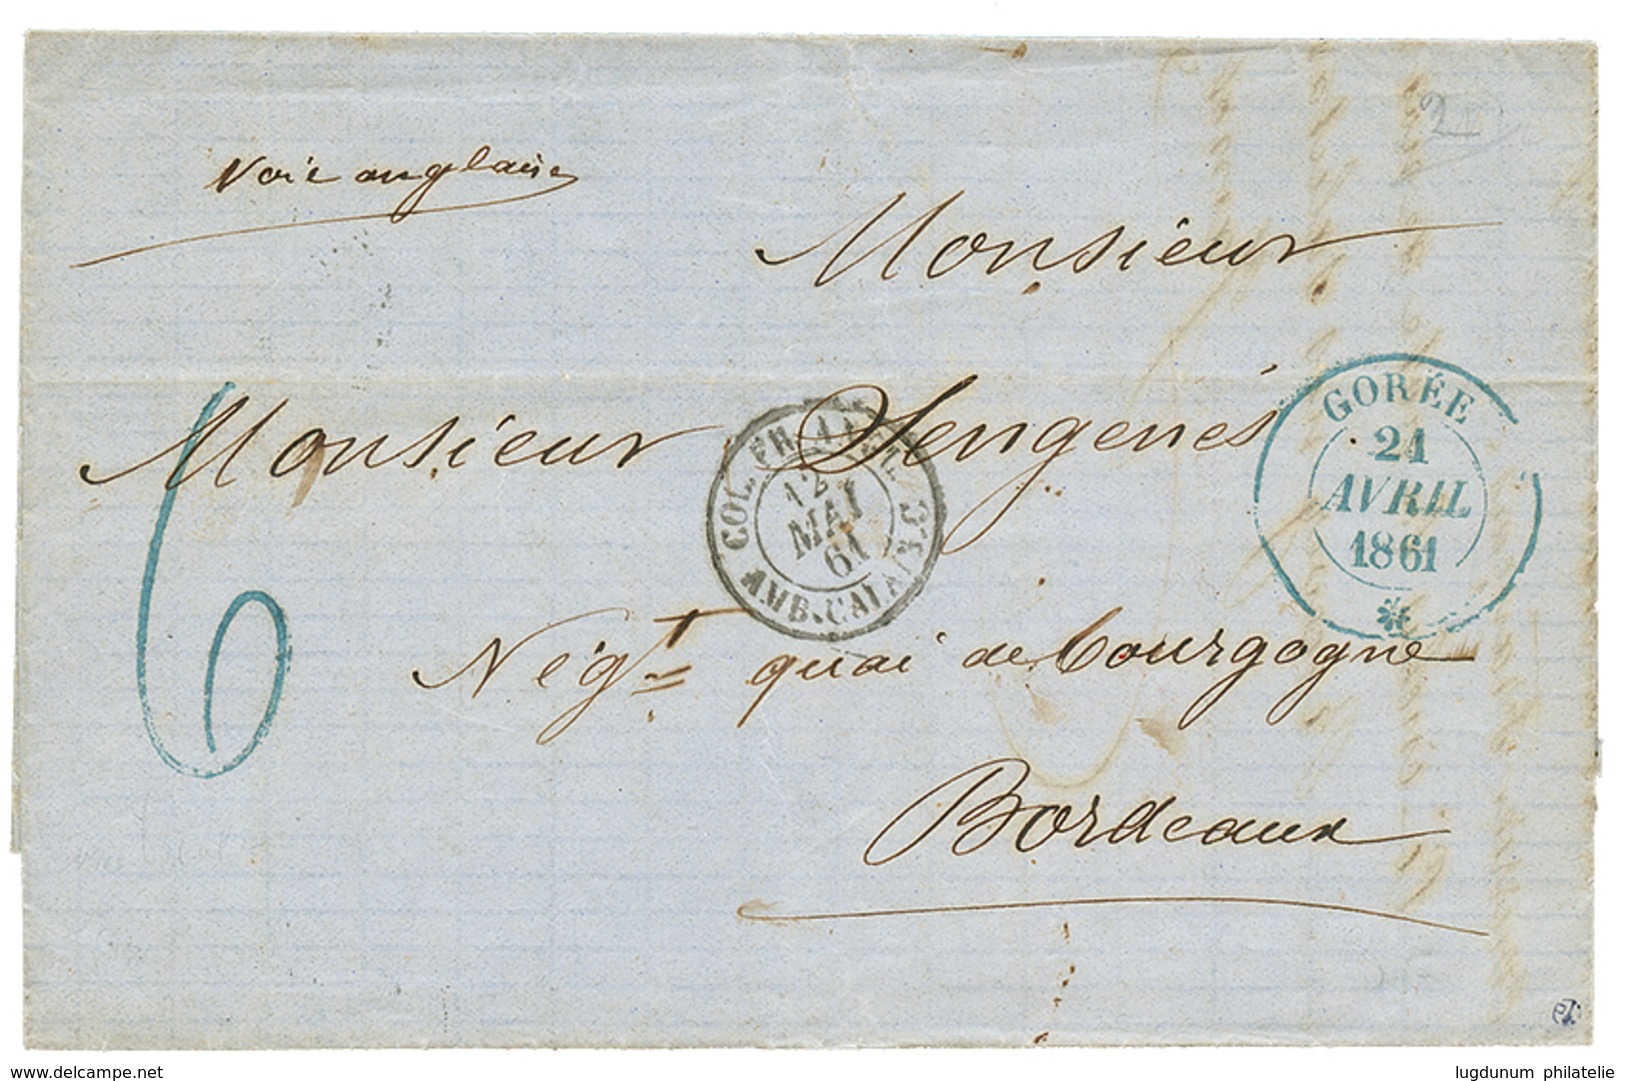 Voie anglaise
Monsieur
Monsieur Sengenès
Nég.t quai de Bourgogne
Bordeaux
6
COL. FR. ANGL.
12
MAI
61
AMB. CALAIS. C
GORÉE
21
AVRIL
1861
lugdunum philatelie